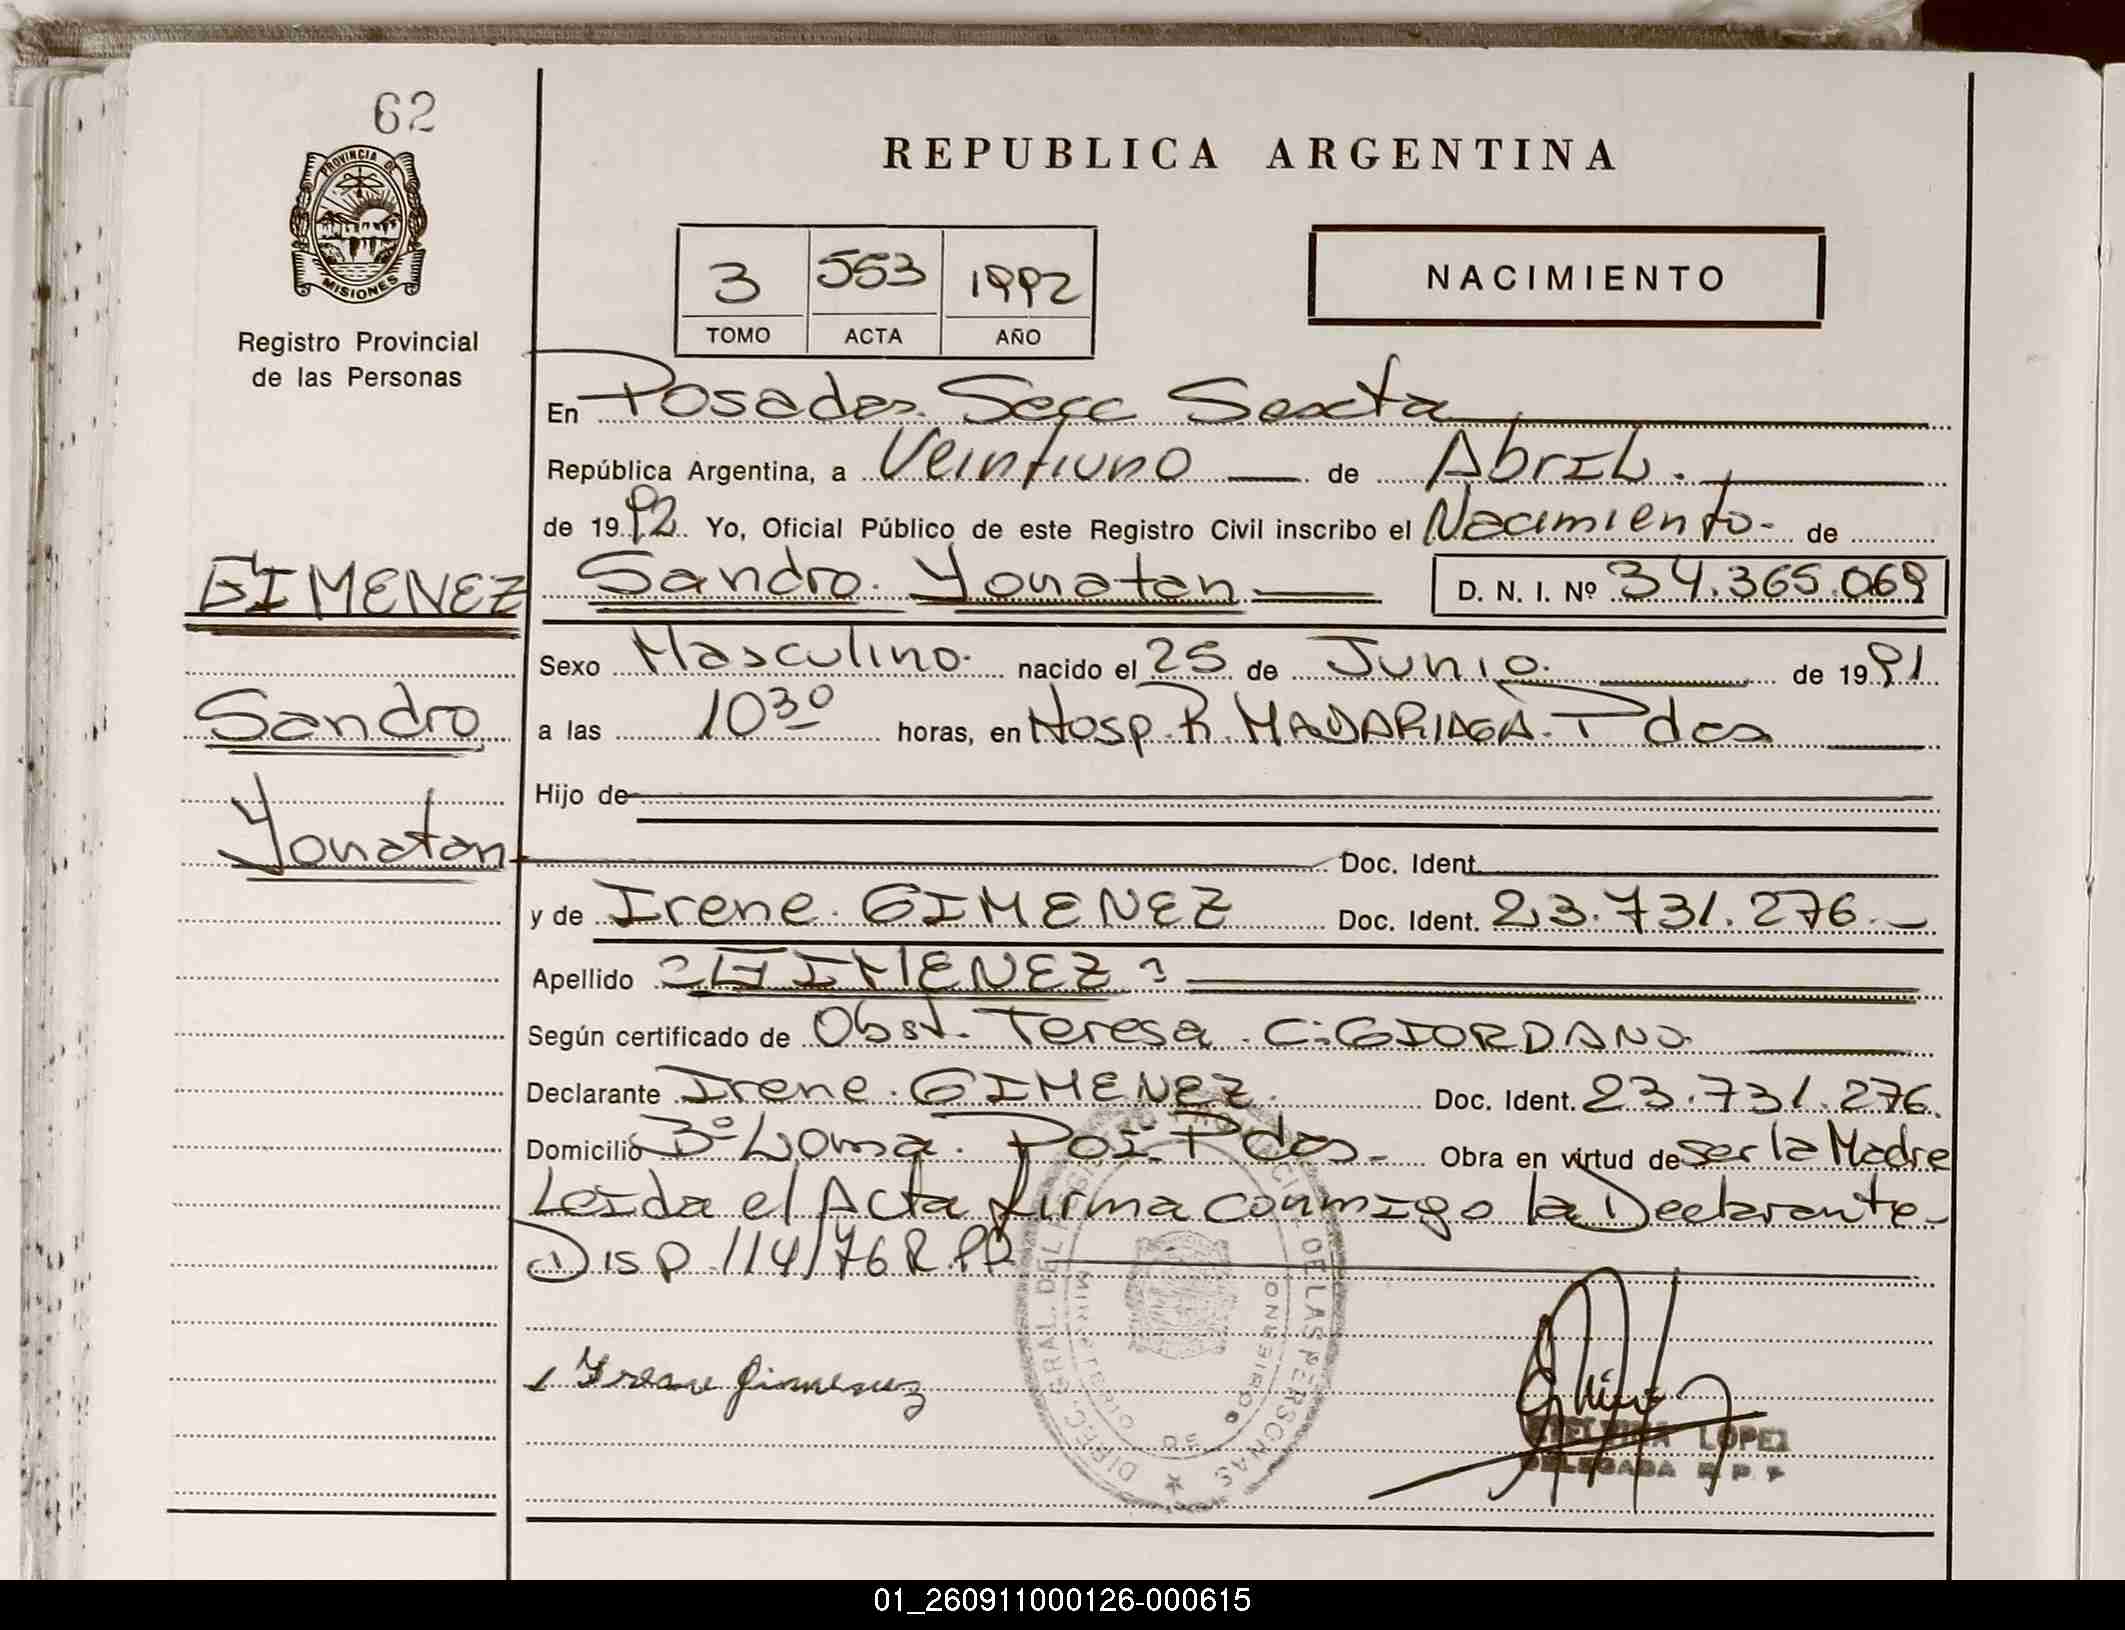 62
PROVINCIA DE
MISIONES
Registro Provincial
de las Personas
REPUBLICA ARGENTINA
3 553 1992
TOMO ACTA AÑO
NACIMIENTO
En Posadas. Secc Sexta
República Argentina, a Veintiuno de Abril.
de 1992. Yo, Oficial Público de este Registro Civil inscribo el Nacimiento- de
GIMENEZ Sandro. Yonatan D. N. I. Nº 34.365.069
Sexo Masculino. nacido el 25 de Junio. de 1991
Sandro a las 10 30 horas, en Hosp. R. MADARIAGA. Pdas
Hijo de
Yonatan Doc. Ident.
y de Irene. GIMENEZ Doc. Ident. 23.731.276.-
Apellido GIMENEZ
Según certificado de Obst. Teresa. C. GIORDANO.
Declarante Irene. GIMENEZ. Doc. Ident. 23.731.276.
Domicilio Bº Loma. Poi. Pdas.- Obra en virtud de ser la Madre
Leida el Acta firma conmigo la Declarante-
Disp. 114/76 R.P.P
DIREC. GRAL. DEL REGISTRO PROVINCIAL DE LAS PERSONAS
MINISTERIO DE GOBIERNO
Irene Gimenez
ETELVINA LOPEZ
DELEGADA R. P. P
01_260911000126-000615